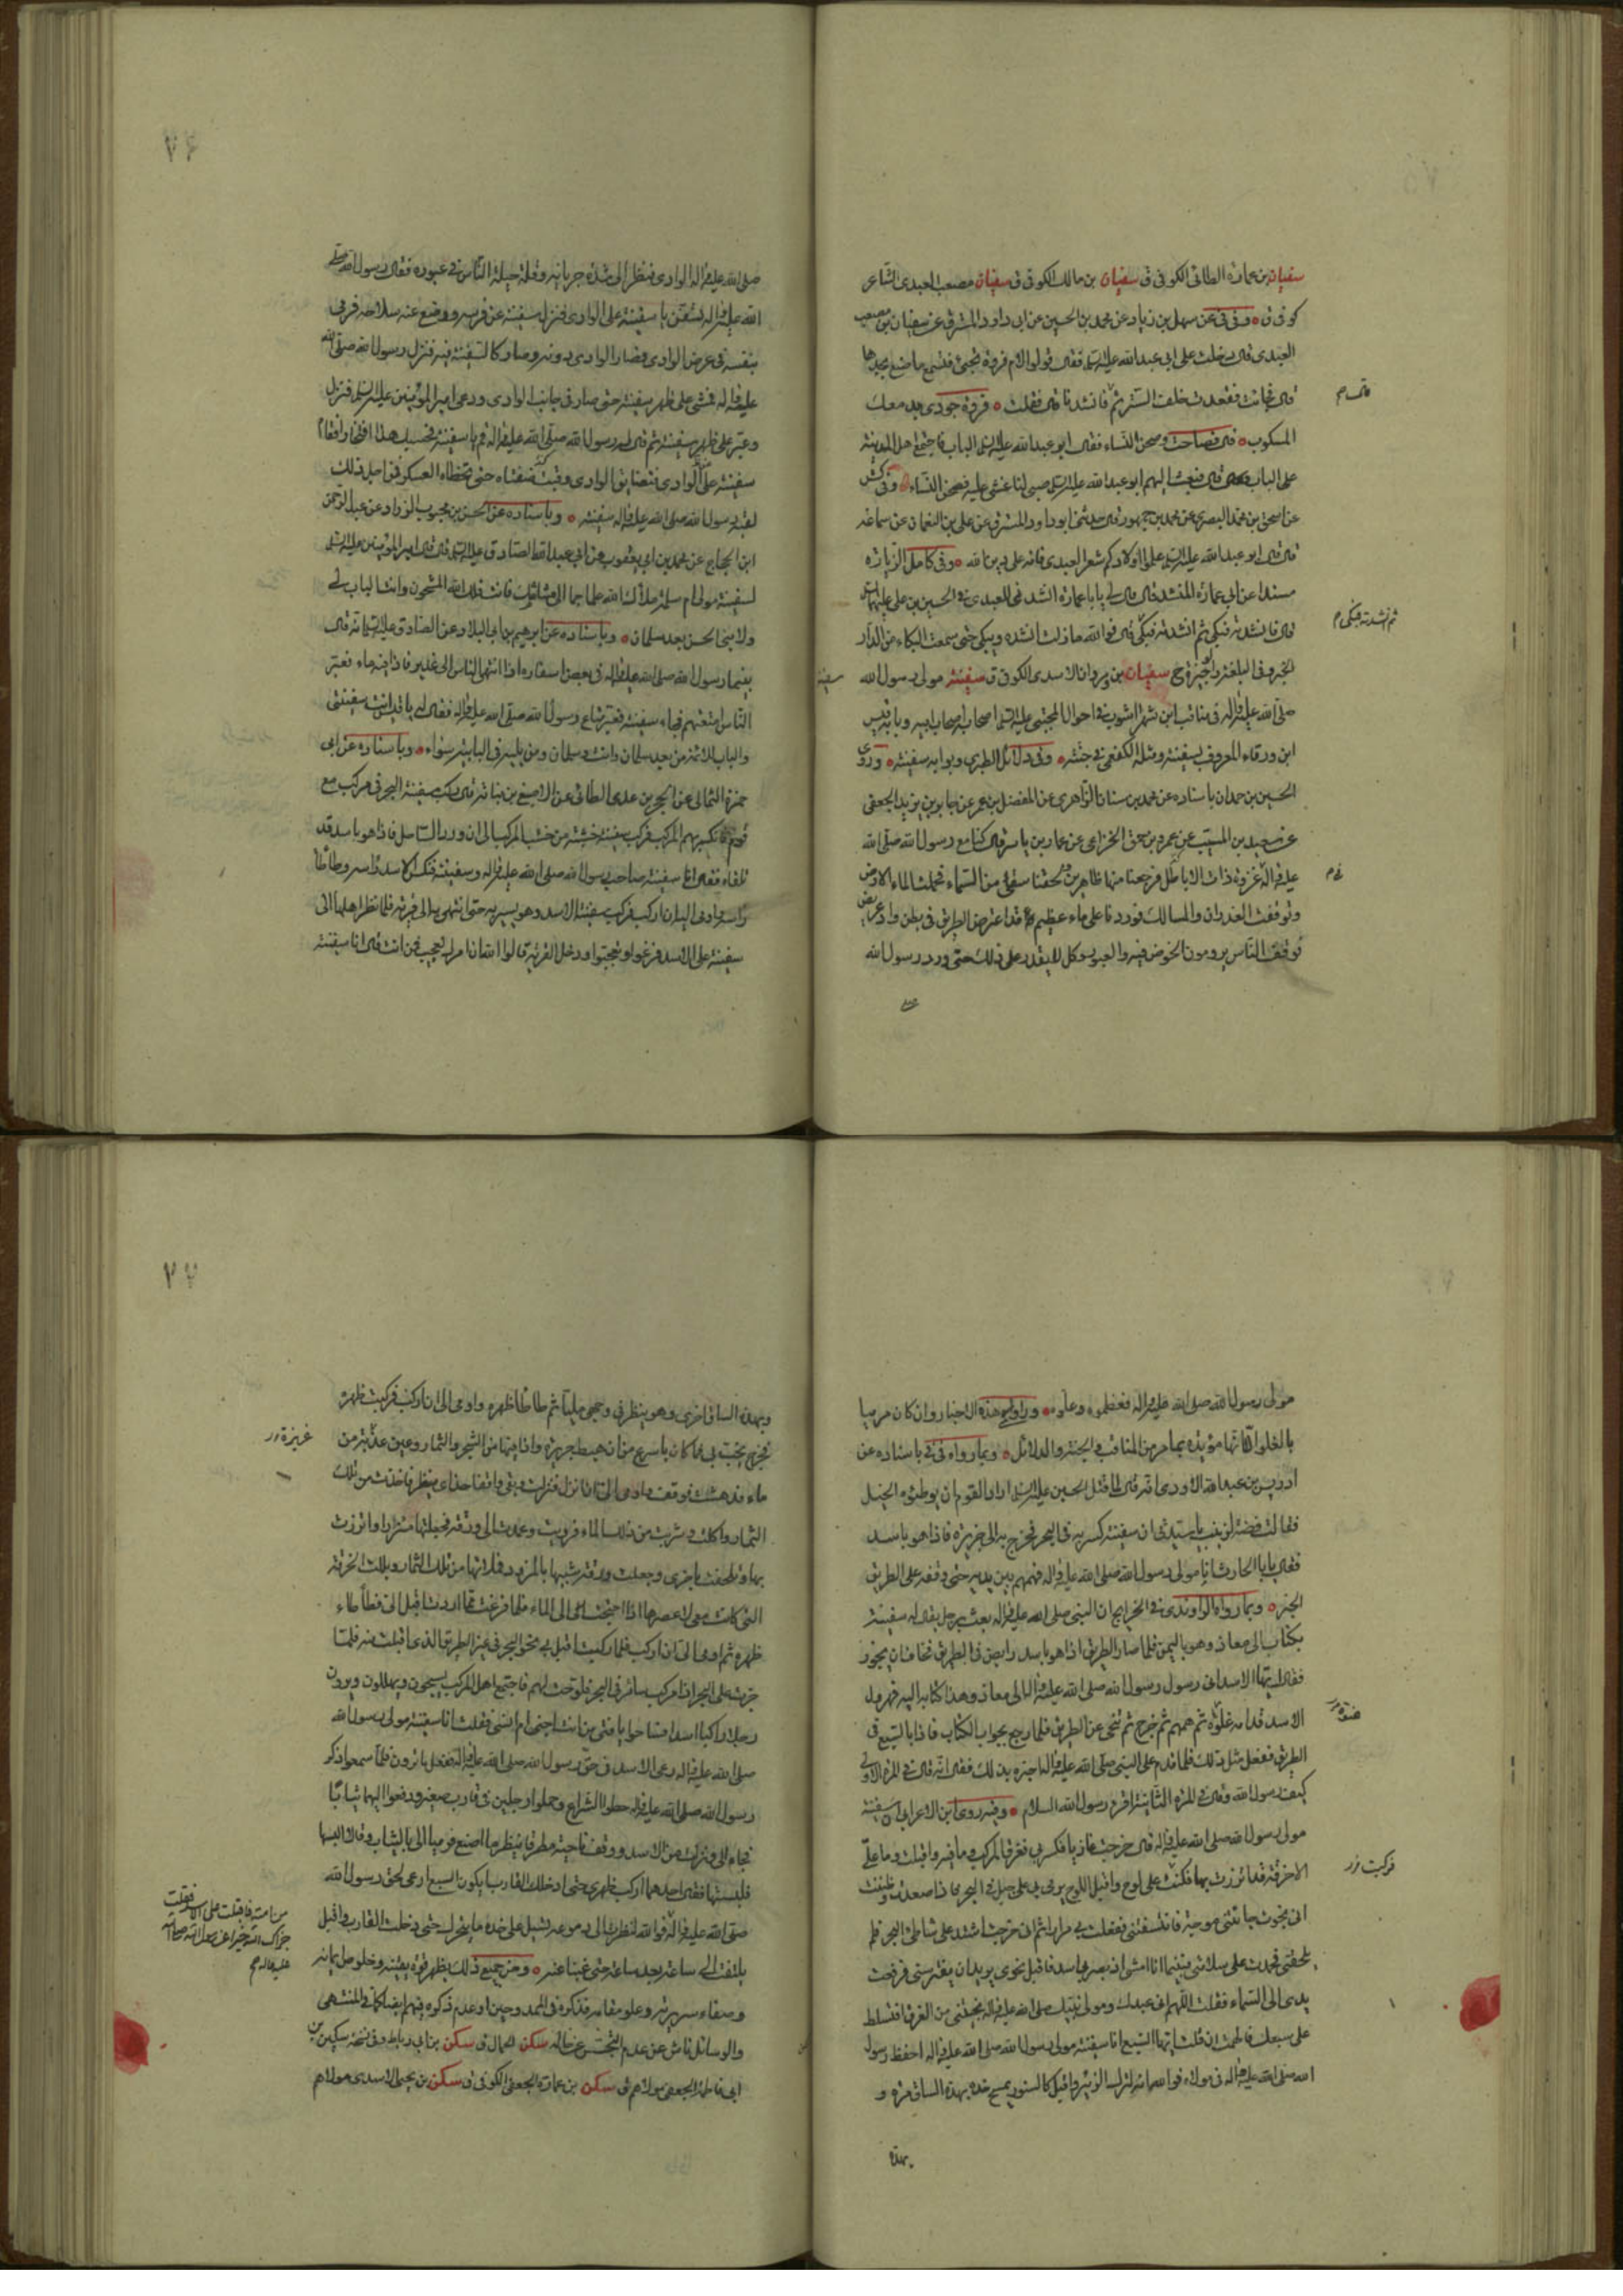 سفيان بن عمارة الطائى الكوفى ق سفيان بن مالك الكوفى ق سفيان مصعب العبدى الشاعر
كوفى ق وفى فى عن سهل بن زياد عن محمد بن الحسين عن ابى داود المسترق عن سفيان بن مصعب
العبدى قال دخلت على ابى عبد الله عليه السلم فقال قولوا لام فروة تجئ فتسمع ما صنع بجدها
قال فجائت فقعدت خلف الستر ثم قال فانشدنا قال فقلت فروة جودى بدمعك
المسكوب قال فصاحت وصحن النساء فقال ابو عبد الله عليه السلم الباب فاجتمع اهل المدينة
على الباب قال فبعث اليهم ابو عبد الله عليه السلم صبى لنا غشى عليه فصحن النساء وفى كش
عن اسحق بن محمد البصرى عن محمد بن جمهور قال حدثنى ابو داود المسترق عن على بن النعمان عن سماعه
قال قال ابو عبد الله عليه السلم علموا اولادكم شعر العبدى فانه على دين الله وفى كامل الزيارة
مسندا عن ابى عمارة المنشد قال قال لى يا با عمارة انشدنى للعبدى فى الحسين بن على عليهما السلم
قال فانشدته فبكى ثم انشدته فبكى قال فوالله ما زلت انشده ويبكى حتى سمعت البكاء من الدار
الخبر وفى البلغة والوجيزة ح سفيان بن وردان الاسدى الكوفى ق سفينة مولى رسول الله
صلى الله عليه واله فى مناقب ابن شهراشوب فى احوال المجتبى عليه السلم اصحابه اصحاب ابيه وبابه قيس
ابن ورقاء المعروف بسفينة ومثله الكفعمى فى جنته وفى دلائل الطبرى وبوابه سفينة وروى
الحسين بن حمدان باسناده عن محمد بن سنان الزاهرى عن المفضل بن عمر عن جابر بن يزيد الجعفى
عن سعيد بن المسيب عن عمرو بن حمق الخزاعى عن عمار بن ياسر قال كنا مع رسول الله صلى الله
عليه واله فى غزوة ذات الاباطل فرجعنا منها ظاهرين ولحقنا سقى من السماء فحملت الماء الارض
وتوقفت الغدران والمسالك فوردنا على ماء عظيم قد اعترض الطريق فى بطن واد عريض
فوقف الناس يرومون الخوض فيه والعبور وكل لا يقدر على ذلك حتى ورد رسول الله
صلى
قال م
ثم انشدته فبكى م
سفينة
صلى الله عليه واله الوادى فنظر الى شدة جريانه وقلة حيلة الناس فى عبوره فقال رسول الله صلى
الله عليه واله لسفينة يا سفينة على الوادى فنزل سفينة عن فرسه ووضع عنه سلاحه فرمى
بنفسه فى عرض الوادى فصار الوادى دونه وصار كالسفينة فيه فنزل رسول الله صلى الله
عليه واله فمشى على ظهر سفينة حتى صار فى جانب الوادى ودعى امير المؤمنين عليه السلم فنزل
وعبر على ظهر سفينة ثم قال له رسول الله صلى الله عليه واله قم يا سفينة فحسبك هذا افتخارا فقام
سفينة على الوادى فتضايق الوادى وقبت ضفتاه حتى تخطاه العسكر فمن اجل ذلك
لقبه رسول الله صلى الله عليه واله سفينة وباسناده عن الحسن بن محبوب الزراد عن عبد الرحمن
ابن الحجاج عن محمد بن ابى يعقوب عن ابى عبد الله الصادق عليه السلم قال قال امير المؤمنين عليه السلم
لسفينة مولى ام سلمة ملأك الله علما جما الى مشاشك فانت فلك الله المشحون وانت الباب لى
ولابنى الحسن بعد سلمان وباسناده عن ابرهيم بن ابى البلاد عن الصادق عليه السلم انه قال
بينما رسول الله صلى الله عليه واله فى بعض اسفاره اذا انتهى الناس الى غدير فاذا فيه ماء فعبر
الناس امتعتهم فجاء سفينة فعبر متاع رسول الله صلى الله عليه واله فقال له يا قيس انت سفينتى
والباب للائمة من بعد سلمان وانت وسلمان ومن يليه فى البابية سواء وباسناده عن ابى
حمزة الثمالى عن الحجر بن عدى الطائى عن الاصبغ بن نباته قال ركب سفينة البحر فى مركب مع
قوم فانكسر بهم المركب فركب سفينة خشبة من خشب المركب الى ان ورد الساحل فاذا هو باسد قد
تلقاه فقال انا سفينة صاحب رسول الله صلى الله عليه واله وسفينته فنكس الاسد رأسه وطأطأ
رأسه واومى اليه ان اركب فركب سفينة الاسد وهو يسير به حتى انتهى به الى قرية فلما نظر اهلها الى
سفينة على الاسد فزعوا وتعجبوا ودخل القرية قالوا الله ان امرك لعجيب فمن انت قال انا سفينة
٧٦
مولى رسول الله صلى الله عليه واله فعظموه وعلوه وراوى هذه الاخبار وان كان مرميا
بالغلو الا انها مؤيدة بما مر من المناقب والجنة والدلائل وبما رواه فى فى باسناده عن
ادريس بن عبد الله الاودى انه قال لما قتل الحسين عليه السلم اراد القوم ان يوطئوه الخيل
فقالت فضة لزينب يا سيدتى ان سفينة كسر به فى البحر فخرج به الى جزيرة فاذا هو باسد
فقال يا ابا الحارث انا مولى رسول الله صلى الله عليه واله فهمهم بين يديه حتى وقفه على الطريق
الخبر وبما رواه الراوندى فى الخرايج ان النبى صلى الله عليه واله بعث برجل يقال له سفينة
بكتاب الى معاذ وهو باليمن فلما صار الطريق اذا هو باسد رابض فى الطريق فخاف ان يجوز
فقال ايها الاسد انى رسول رسول الله صلى الله عليه واله الى معاذ وهذا كتابه اليه فهرول
الاسد قدامه غلوة ثم همهم ثم خرج ثم تنحى عن الطريق فلما رجع بجواب الكتاب فاذا بالسبع فى
الطريق ففعل مثل ذلك فلما قدم على النبى صلى الله عليه واله اخبره بذلك فقال انه قال فى المرة الاولى
كيف رسول الله وقال فى المرة الثانية اقرء رسول الله السلام وفيه روى ابن الاعرابى ان سفينة
مولى رسول الله صلى الله عليه واله قال خرجت غازيا فكسر بى فغرق المركب وما فيه واقبلت وما على
الا خرقة قد اتزرت بها فكنت على لوح واقبل اللوح يرمى بى على جبل فى البحر فاذا صعدت وظننت
انى نجوت جائتنى موجة فانتسفتنى ففعلت بى مرارا ثم انى خرجت اشتد على شاطئ البحر فلم
تلحقنى فحمدت على سلامتى فبينما انا امشى اذ بصر بى اسد فاقبل نحوى يريد ان يفترسنى فرفعت
يدى الى السماء فقلت اللهم انى عبدك ومولى نبيك صلى الله عليه واله نجيتنى من الغرق افتسلط
على سبعك فالهمت ان قلت ايها السبع انا سفينة مولى رسول الله صلى الله عليه واله احفظ رسول
الله صلى الله عليه واله فى مولاه فوالله انه لترك الزئير واقبل كالسنور يمسح خده بهذه الساق مرة و
بهذه
فركبت
وبهذه الساق اخرى وهو ينظر فى وجهى مليا ثم طأطأ ظهره واومى الى ان اركب فركبت ظهره
فخرج يخب بى فما كان باسرع من ان هبط جزيرة واذا فيها من الشجر والثمار وعين عذبة من
ماء فدهشت فوقف واومى الى ان انزل فنزلت وبقى واقفا حذاى ينظر فاخذت من تلك
الثمار واكلت وشربت من ذلك الماء فرويت وعمدت الى ورقة فجعلتها مئزرا واتزرت
بها وتلحفت باخرى وجعلت ورقة شبيها بالمزود فملاتها من تلك الثمار وبللت الخرقة
التى كانت معى لاعصرها اذا احتجت الى الماء فلما فرغت مما اردت اقبل الى فطأطأ
ظهره ثم اومى الى ان اركب فلما ركبت اقبل بى نحو البحر فى غير الطريق الذى اقبلت منه فلما
جزت على البحر اذا مركب سائر فى البحر فلوحت لهم فاجتمع اهل المركب يسبحون ويهللون ويرون
رجلا راكبا اسدا فصاحوا يا فتى من انت اجنى ام انسى فقلت انا سفينة مولى رسول الله
صلى الله عليه واله رعى الاسد فى حق رسول الله صلى الله عليه واله ففعل ما ترون فلما سمعوا ذكر
رسول الله صلى الله عليه واله حطوا الشراع وحملوا رجلين فى قارب صغير ودفعوا اليهما ثيابا
فجاءا الى ونزلت من الاسد ووقف ناحية مطرقا ينظر ما اصنع فرميا الى بالثياب وقالا البسها
فلبستها فقال احدهما اركب ظهرى حتى ادخلك القارب ايكون السبع ارعى لحق رسول الله
صلى الله عليه واله فوالله لنظرت الى دموعه تسيل على خده ما يتحرك حتى دخلت القارب واقبل
يلتفت الى ساعة بعد ساعة حتى غبنا عنه ومن جميع ذلك يظهر قوة يقينه وخلوص ايمانه
وصفاء سريرته وعلو مقامه فذكره فى الممدوحين او عدم ذكره فيهم ايضا كما فى المنتهى
والوسائل ناش عن عدم التجسس عن حاله سكن الجمال ق سكن بن ابى رباط وفى نسخة سكين بن
ابى فاطمة الجعفى مولاهم ق سكن بن عمارة الجعفى الكوفى ق سكن بن يحيى الاسدى مولاهم
من امته فاقبلت على الاسد فقلت
جزاك الله خيرا عن رسول الله صلى الله
عليه واله
٧٧